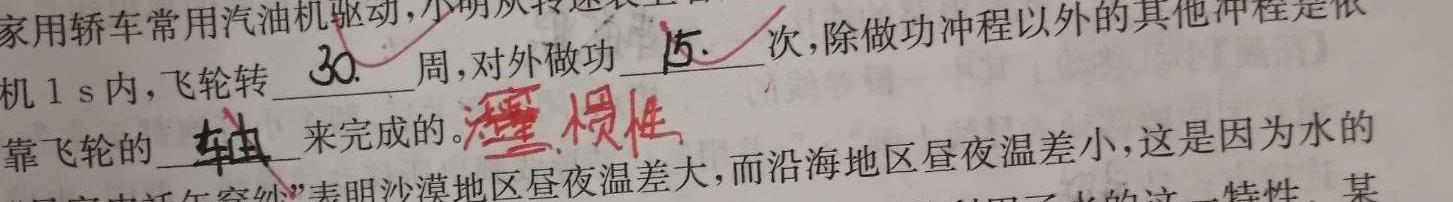 家用轿车常用汽油机驱动,小明从转速表上
机 1 s 内,飞轮转 30. 周,对外做功 15. 次,除做功冲程以外的其他冲程是依
靠飞轮的 轴 来完成的。惯性
”表明沙漠地区昼夜温差大,而沿海地区昼夜温差小,这是因为水的
的这一特性。某